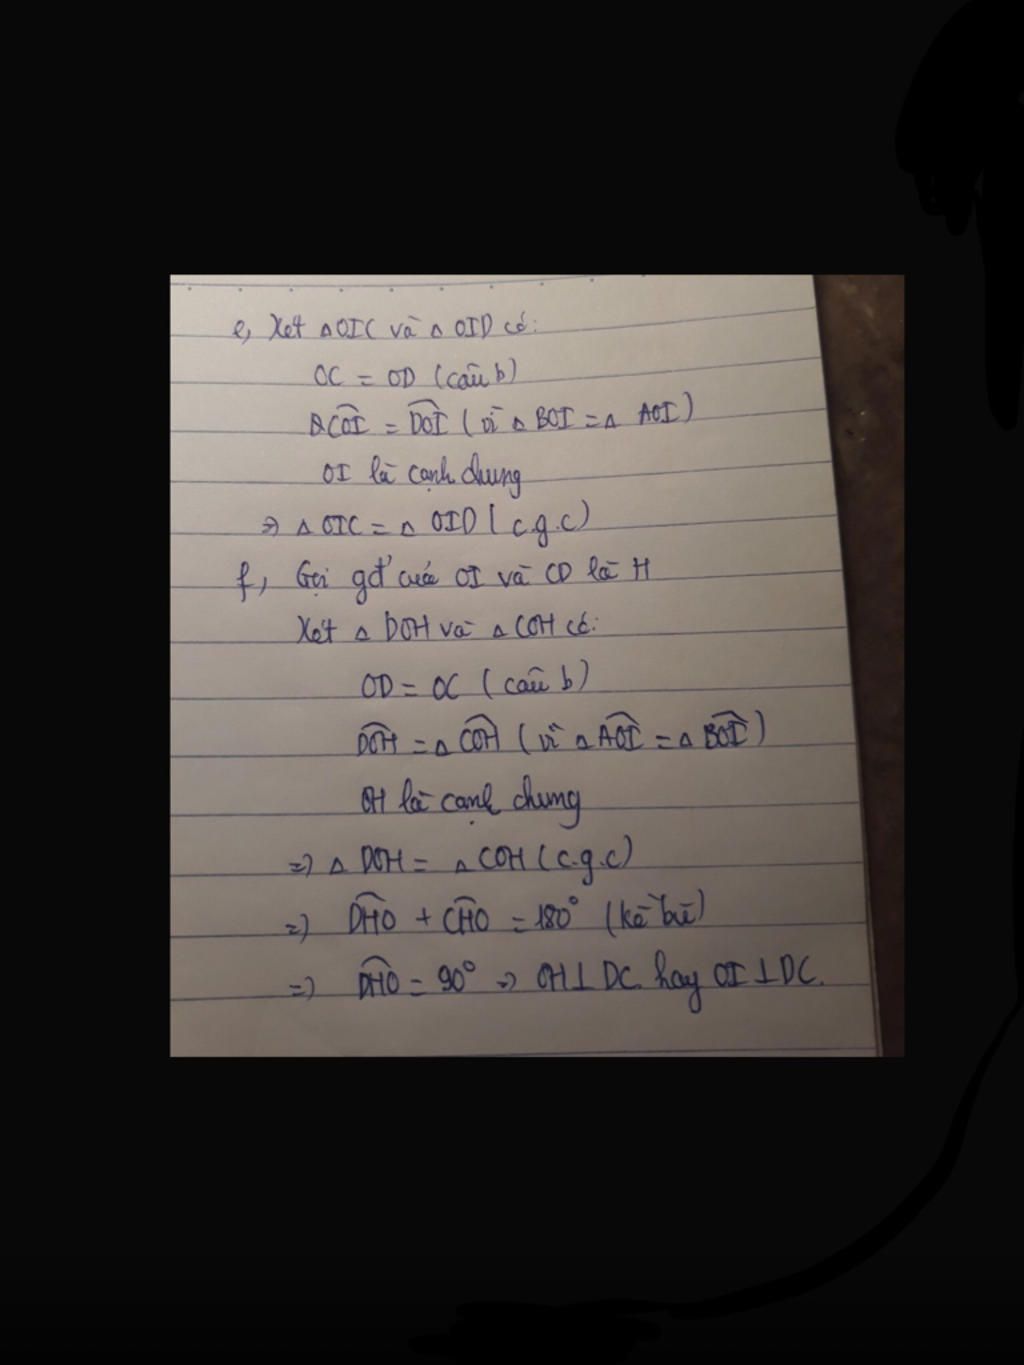 e, Xét △OIC và △ OID có:
OC = OD (câu b)
COI = DOI (vì △ BOI = △ AOI)
OI là cạnh chung
=> △ OIC = △ OID (c.g.c)
f, Gọi gđ' của OI và CD là H
Xét △ DOH và △ COH có:
OD = OC (câu b)
DOH = △ COH (vì △ AOI = △ BOI)
OH là cạnh chung
=> △ DOH = △ COH (c.g.c)
=> DHO + CHO = 180° (kề bù)
=> DHO = 90° => OH⊥DC hay OI⊥DC.